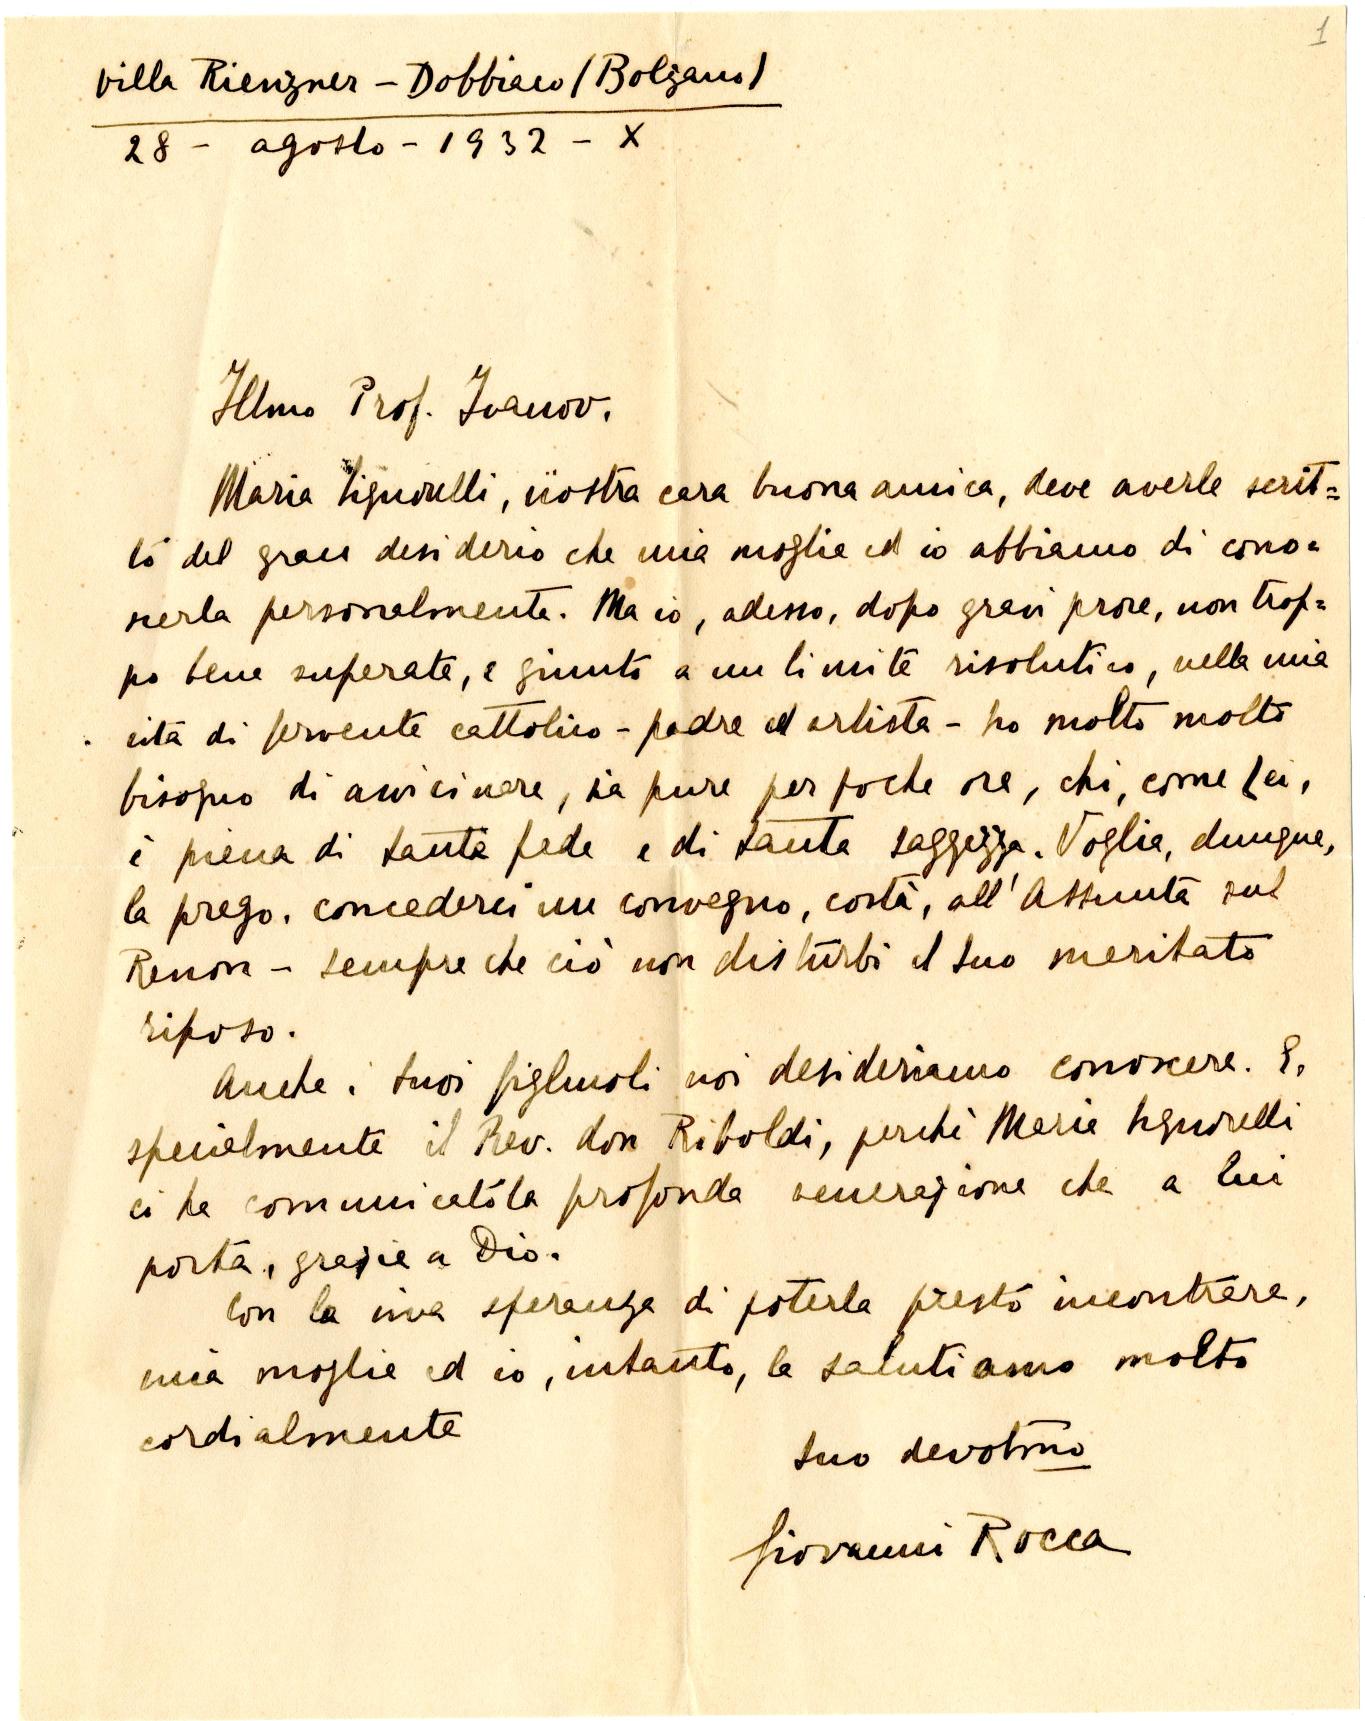 1
Villa Rienzner – Dobbiaco (Bolzano)
28 – agosto – 1932 – X
Illmo Prof. Ivanov.
Maria Signorelli, nostra cara buona amica, deve averle scrit=
to del gran desiderio che mia moglie ed io abbiamo di cono=
scerla personalmente. Ma io, adesso, dopo gravi prove, non trop=
po bene superate, e giunto a un limite risolutivo, nella mia
vita di fervente cattolico – padre ed artista – ho molto molto
bisogno di avvicinare, sia pure per poche ore, chi, come Lei,
è piena di santa fede e di santa saggezza. Voglia, dunque,
la prego, concederci un convegno, costà, all'Assunta sul
Renon – sempre che ciò non disturbi il suo meritato
riposo.
Anche i suoi figliuoli noi desideriamo conoscere. E,
specialmente il Rev. don Riboldi, perchè Maria Signorelli
ci ha comunicato la profonda venerazione che a lui
porta, grazie a Dio.
Con la viva speranza di poterla presto incontrare,
mia moglie ed io, intanto, la salutiamo molto
cordialmente
suo devotmo
Giovanni Rocca